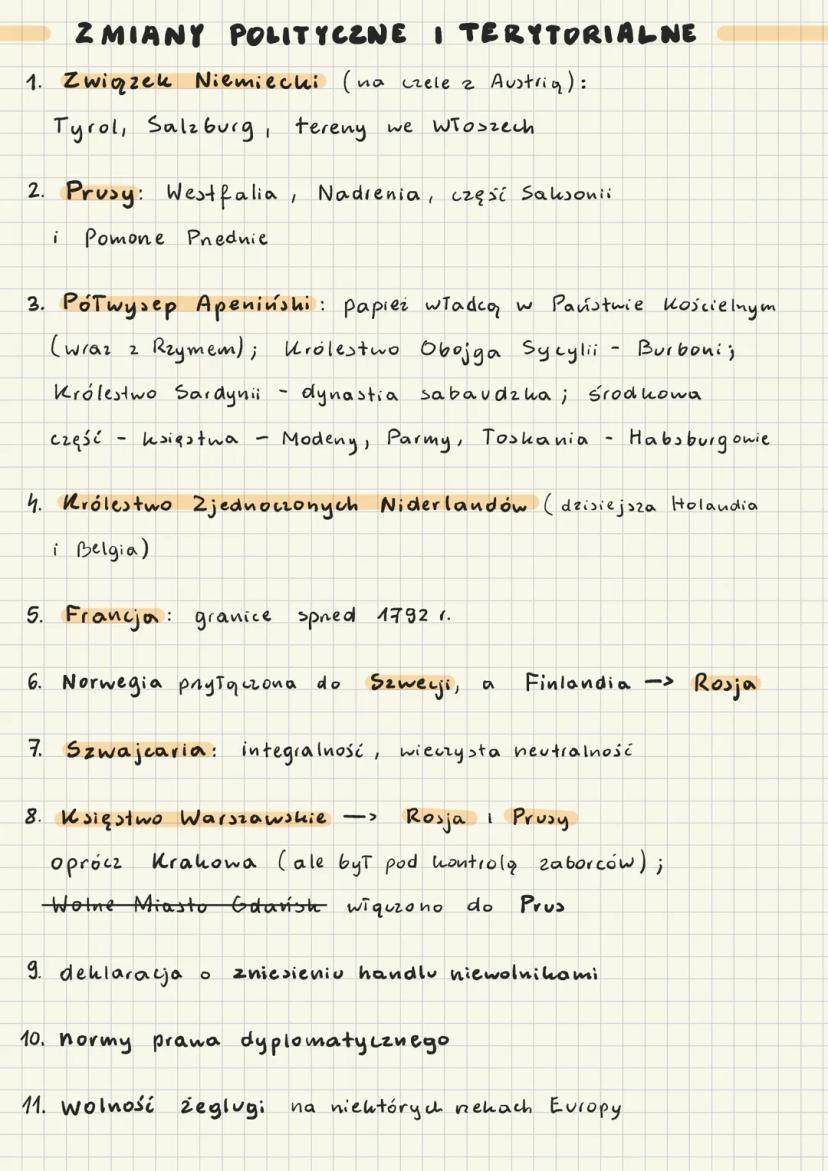 ZMIANY POLITYCZNE I TERYTORIALNE
1. Związek Niemiecki (na czele z Austrią):
Tyrol, Salzburg, tereny we Włoszech
2. Prusy: Westfalia, Nadrenia, część Saksonii
i Pomorze Przednie
3. Półwysep Apeniński: papież władcą w Państwie Kościelnym
(wraz z Rzymem); Królestwo Obojga Sycylii - Burboni;
Królestwo Sardynii - dynastia sabaudzka; środkowa
część - księstwa - Modeny, Parmy, Toskania - Habsburgowie
4. Królestwo Zjednoczonych Niderlandów (dzisiejsza Holandia
i Belgia)
5. Francja: granice sprzed 1792 r.
6. Norwegia przyłączona do Szwecji, a Finlandia -> Rosja
7. Szwajcaria: integralność, wieczysta neutralność
8. Księstwo Warszawskie -> Rosja i Prusy
oprócz Krakowa (ale był pod kontrolą zaborców);
Wolne Miasto Gdańsk włączono do Prus
9. deklaracja o zniesieniu handlu niewolnikami
10. normy prawa dyplomatycznego
11. wolność żeglugi na niektórych rzekach Europy